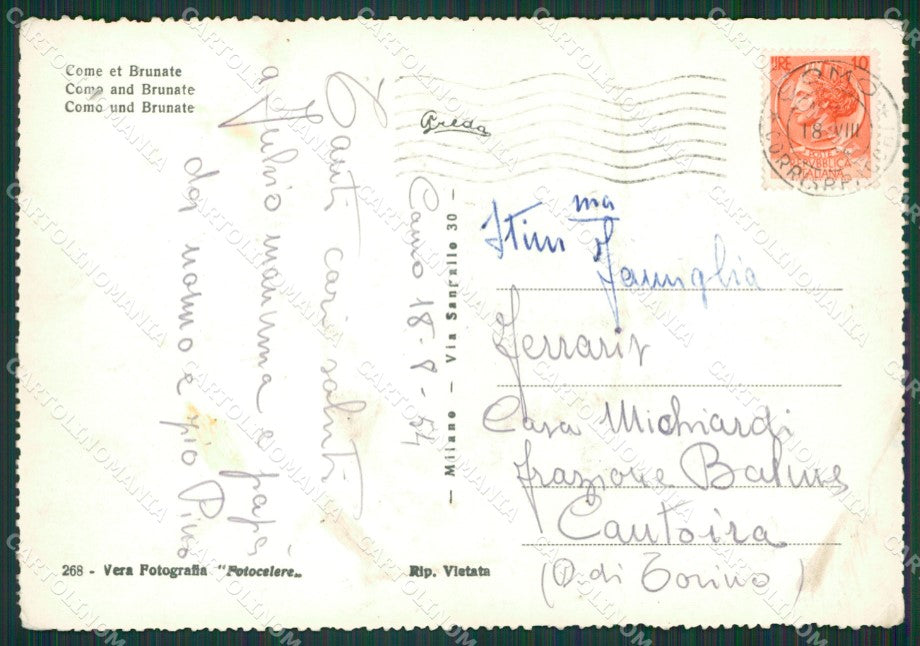 Come et Brunate
Como and Brunate
Como und Brunate
Breda
LIRE 10
18 VIII
REPUBBLICA
ITALIANA
Tanti cari saluti
a Fulvio mamma e papà
dai nonno e zio Pino
Como 18-8-54
— Milano — Via Sangallo 30 —
Ill.ma Famiglia
Ferraris
Casa Michiardi
frazione Balme
Cantoira
(P. di Torino)
268 - Vera Fotografia "Fotocelere„
Rip. Vietata
CARTOLINOMANIA